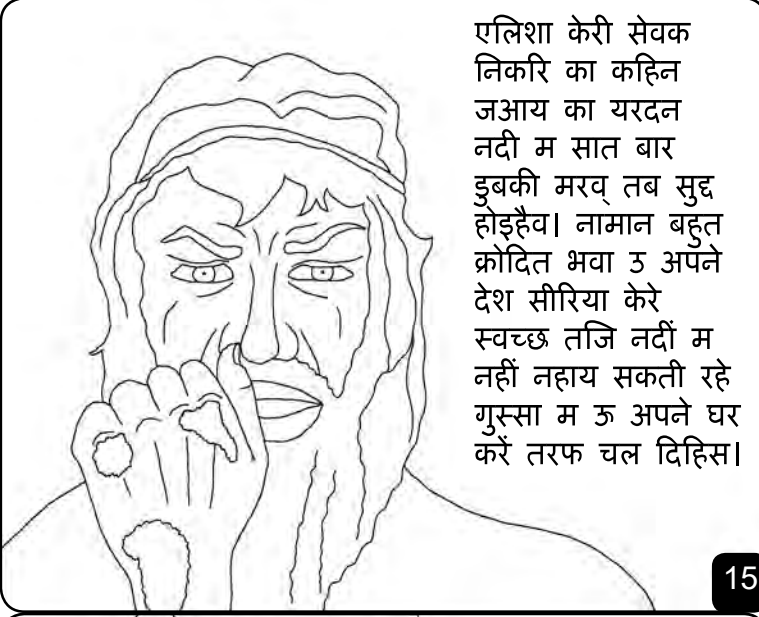 एलिशा केरी सेवक
निकरि का कहिन
जआय का यरदन
नदी म सात बार
डुबकी मरव् तब सुद्द
होइहैव। नामान बहुत
क्रोदित भवा उ अपने
देश सीरिया केरे
स्वच्छ तजि नदीं म
नहीं नहाय सकती रहे
गुस्सा म ऊ अपने घर
करें तरफ चल दिहिस।
15